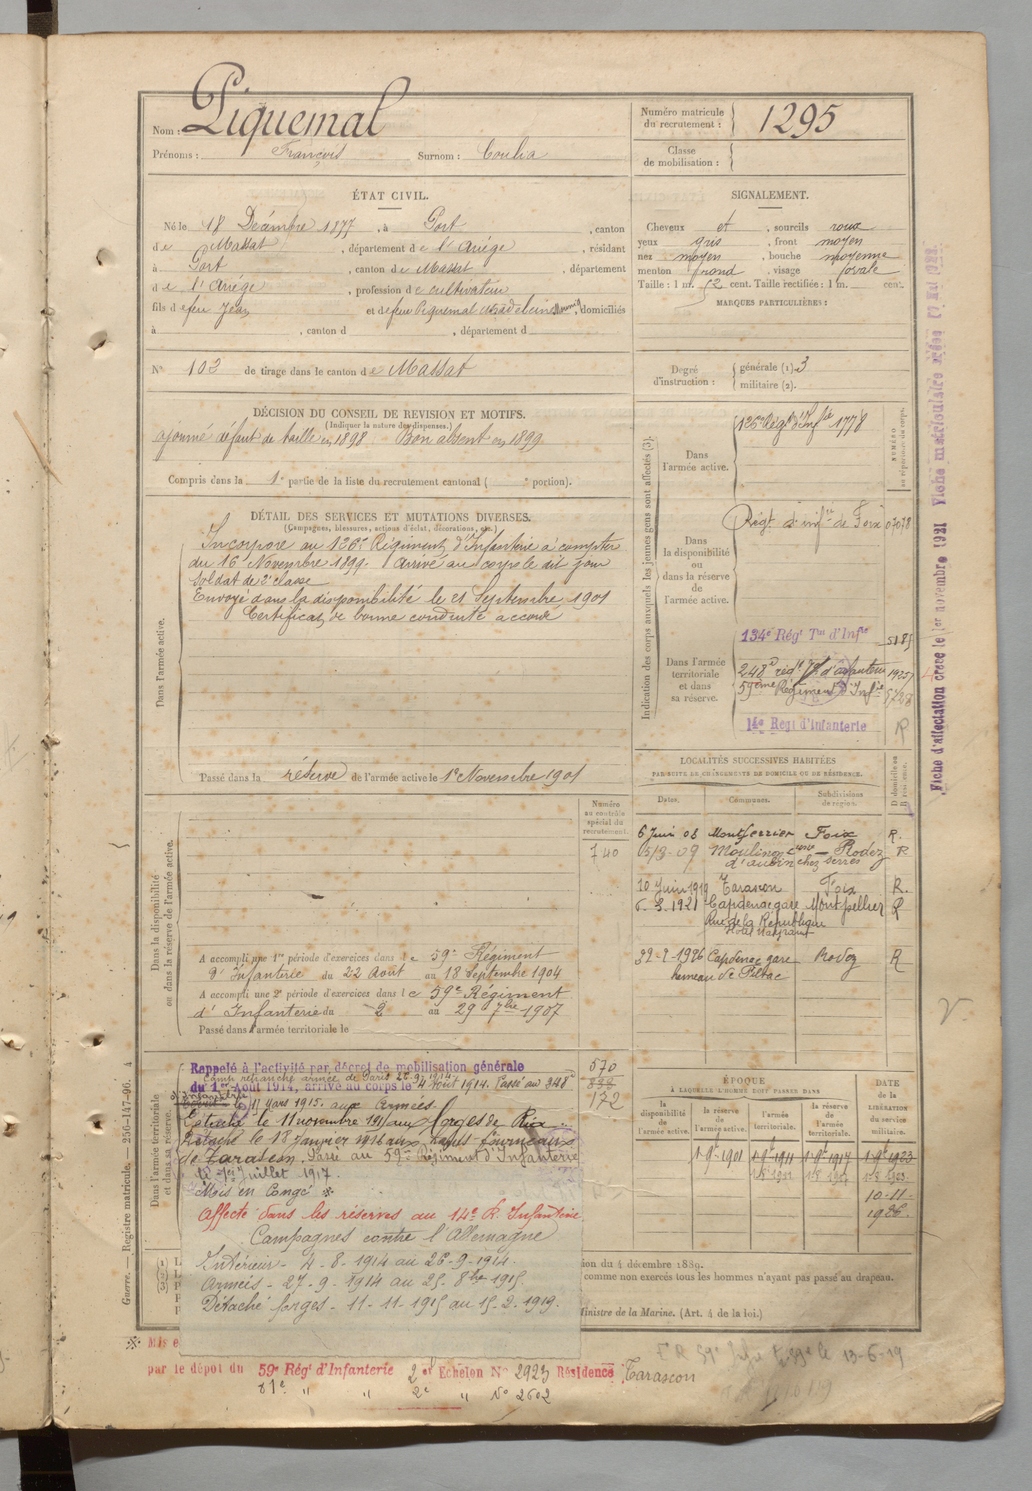 Nom : Piquemal
Prénoms : François Surnom : Coulia
Numéro matricule du recrutement : 1295
Classe de mobilisation :
ÉTAT CIVIL.
Né le 18 Décembre 1877, à Port, canton
de Massat, département de l'Ariège, résidant
à Port, canton de Massat, département
de l'Ariège, profession de cultivateur
fils de feu Jean et de feu Piquemal Madeleine, domiciliés
à , canton d , département d
SIGNALEMENT.
Cheveux et , sourcils roux
yeux gris , front moyen
nez moyen , bouche moyenne
menton rond , visage ovale
Taille : 1 m. 52 cent. Taille rectifiée : 1 m. cent.
MARQUES PARTICULIÈRES :
N° 102 de tirage dans le canton de Massat
Degré d'instruction : générale (1). 3
militaire (2).
DÉCISION DU CONSEIL DE REVISION ET MOTIFS.
(Indiquer la nature des dispenses.)
ajourné défaut de taille en 1898 Bon absent en 1899
Compris dans la 1e partie de la liste du recrutement cantonal ( e portion).
DÉTAIL DES SERVICES ET MUTATIONS DIVERSES.
(Campagnes, blessures, actions d'éclat, décorations, etc.)
Dans l'armée active.
Incorporé au 126e Régiment d'Infanterie à compter
du 16 Novembre 1899. Arrivé au corps le dit jour
Soldat de 2e classe
Envoyé dans la disponibilité le 21 Septembre 1901
Certificat de bonne conduite accordé
Passé dans la réserve de l'armée active le 1e Novembre 1901
Indication des corps auxquels les jeunes gens sont affectés (3).
NUMÉRO au répertoire du corps.
Dans l'armée active.
126e Régt d'Infie 1778
Dans la disponibilité ou dans la réserve de l'armée active.
Régt d'infie de Foix 07078
Dans l'armée territoriale et dans sa réserve.
134e Régt Tal d'Infie 5185
248e régt d'infanterie
59ème Régiment d'Infie 5728
14e Régt d'Infanterie R
Fiche d'affectation créée le 1er novembre 1921
LOCALITÉS SUCCESSIVES HABITÉES
PAR SUITE DE CHANGEMENTS DE DOMICILE OU DE RÉSIDENCE.
Dates. Communes. Subdivisions de région. D domicile ou R résidence.
6 Juin 06 Montferrier Foix R.
Rodez R
d'aubin chez Serres
10 Juin 1919 Tarascon Foix R.
6.8.1921 Capdenac gare Montpellier R
Rue de la République
22-2-1926 Capdenac gare Rodez R
hameau de
Dans la disponibilité ou dans la réserve de l'armée active.
Numéro au contrôle spécial du recrutement.
740
A accompli une 1re période d'exercices dans le 59e Régiment
d'Infanterie du 22 Août au 18 Septembre 1904
A accompli une 2e période d'exercices dans le 59e Régiment
d'Infanterie du 2 au 29 7bre 1907
Passé dans l'armée territoriale le
Dans l'armée territoriale et dans sa réserve.
570
172
Rappelé à l'activité par décret de mobilisation générale
du 1er Août 1914, arrivé au corps le 4 Août 1914. Passé au 248e
d'Infanterie
le 11 Mars 1915. aux Armées.
Détaché le 11 novembre 1915 aux forges de Ria.
Détaché le 18 Janvier 1916 aux hauts fourneaux
de Tarascon. Passé au 59e Régiment d'Infanterie
le 1er Juillet 1917.
Mis en Congé ※
Affecté dans les réserves au 14e R. Infanterie.
Campagnes contre l'Allemagne
Intérieur - 4-8-1914 au 26-9-1914.
Armées - 27-9-1914 au 25-8bre 1915.
Détaché forges - 11-11-1915 au 15-2-1919.
ÉPOQUE
À LAQUELLE L'HOMME DOIT PASSER DANS
la disponibilité de l'armée active. la réserve de l'armée active. l'armée territoriale. la réserve de l'armée territoriale.
DATE de la LIBÉRATION du service militaire.
1-9e-1901 1-9e-1911 1-9e-1917 1-9e-1923
10-11-1926.
ion du 4 décembre 1889.
comme non exercés tous les hommes n'ayant pas passé au drapeau.
Ministre de la Marine. (Art. 4 de la loi.)
Guerre. — Registre matricule. — 256-147-96. 4
※ Mis e
par le dépôt du 59e Rég' d'Infanterie 2e Echelon N° 2923 Résidence : Tarascon
d1e " " 2e " N° 2602
13-6-19